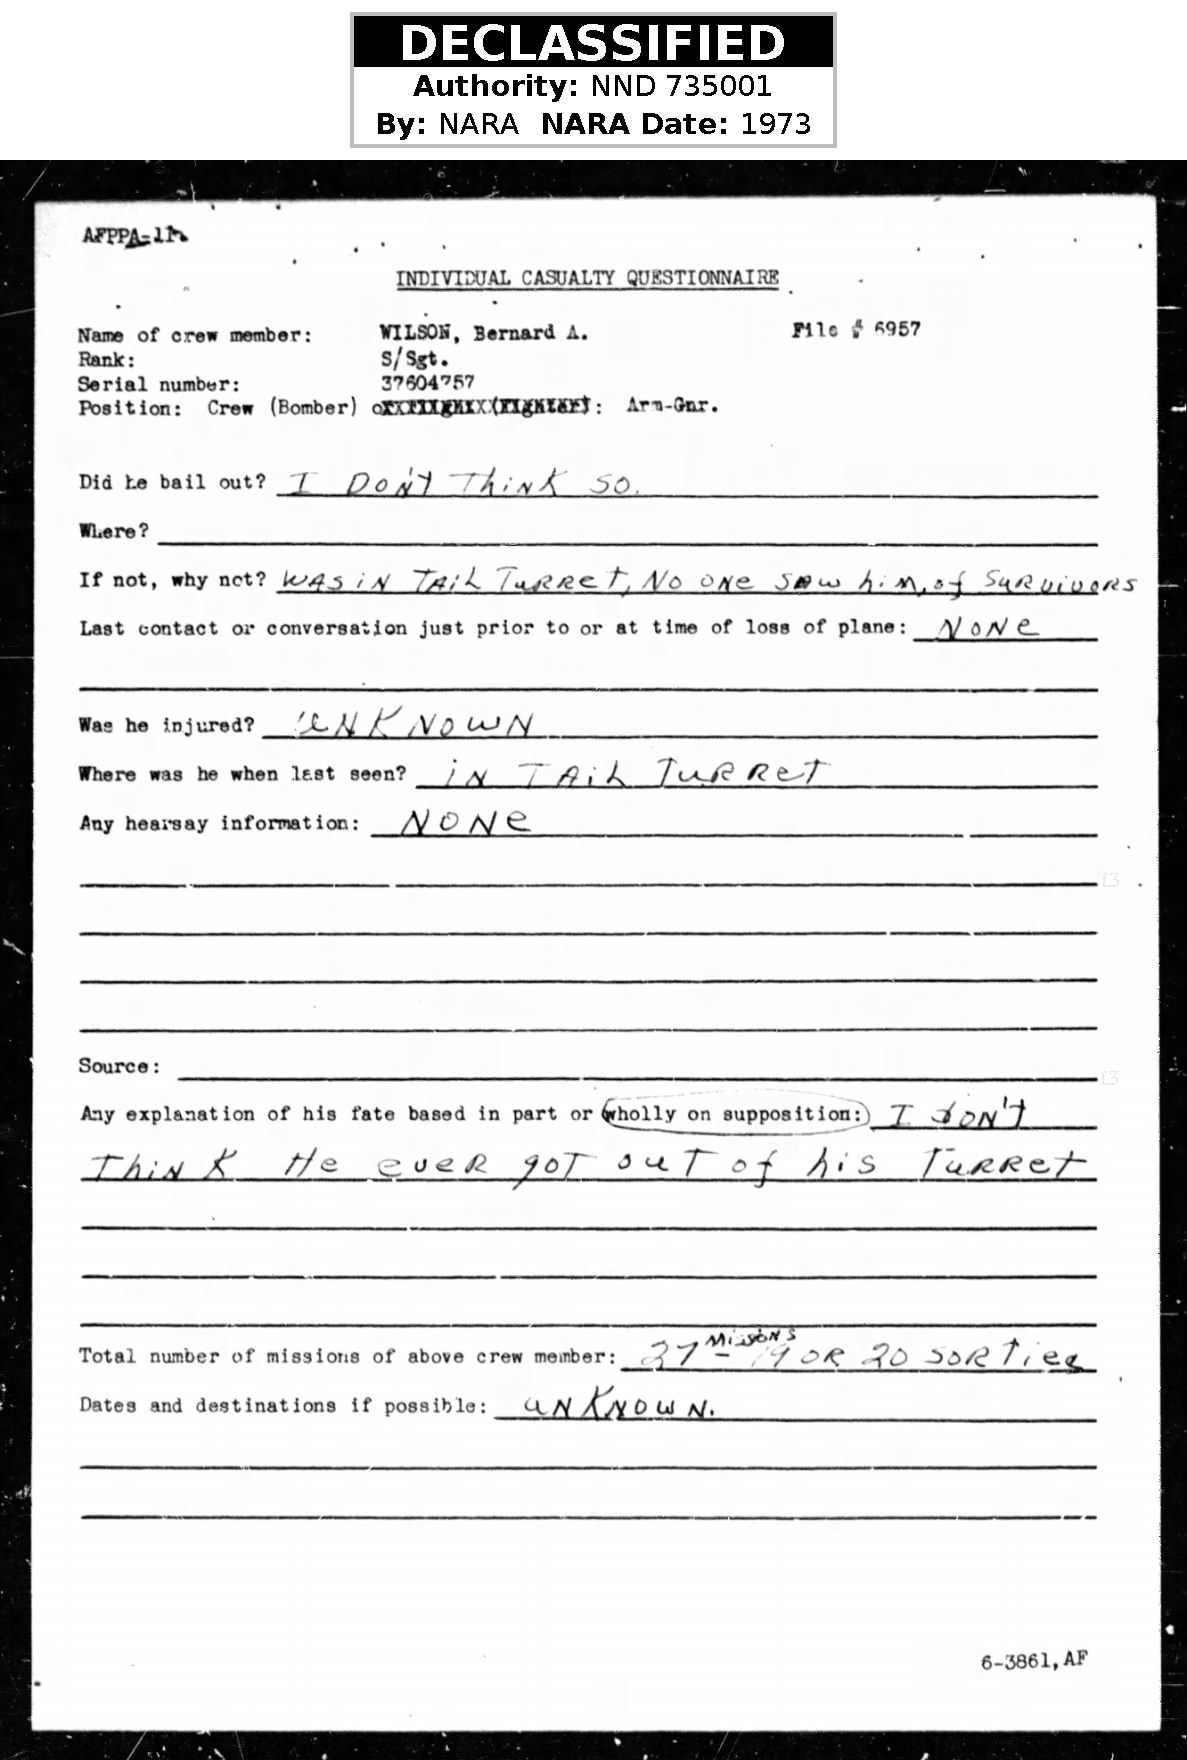 DECLASSIFIED
Authority: NND 735001
By: NARA NARA Date: 1973
AFPPA-11
INDIVIDUAL CASUALTY QUESTIONNAIRE
Name of crew member: WILSON, Bernard A. File # 6957
Rank: S/Sgt.
Serial number: 37604757
Position: Crew (Bomber) : Arm-Gnr.
Did he bail out? I DON'T THiNK SO.
Where?
If not, why not? WAS iN TAiL TuRReT, No oNe SAw hiM, of SuRViVoRS
Last contact or conversation just prior to or at time of loss of plane: NoNe
Was he injured? UNKNOWN
Where was he when last seen? iN TAiL TuRReT
Any hearsay information: NoNe
Source:
Any explanation of his fate based in part or wholly on supposition: I doN'T
ThiNK He eveR goT ouT of his TuRReT
MissoNS
Total number of missions of above crew member: 37 - 19 OR 20 SORTiee
Dates and destinations if possible: uNKNowN.
6-3861, AF